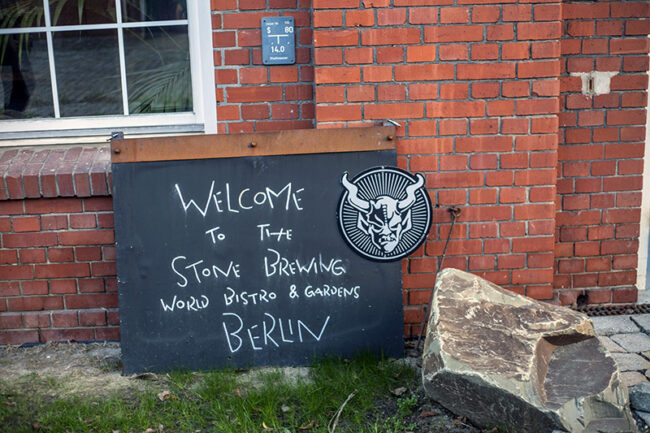 $ 80
14.0
WELCOME
TO THE
STONE BREWING
WORLD BISTRO & GARDENS
BERLIN